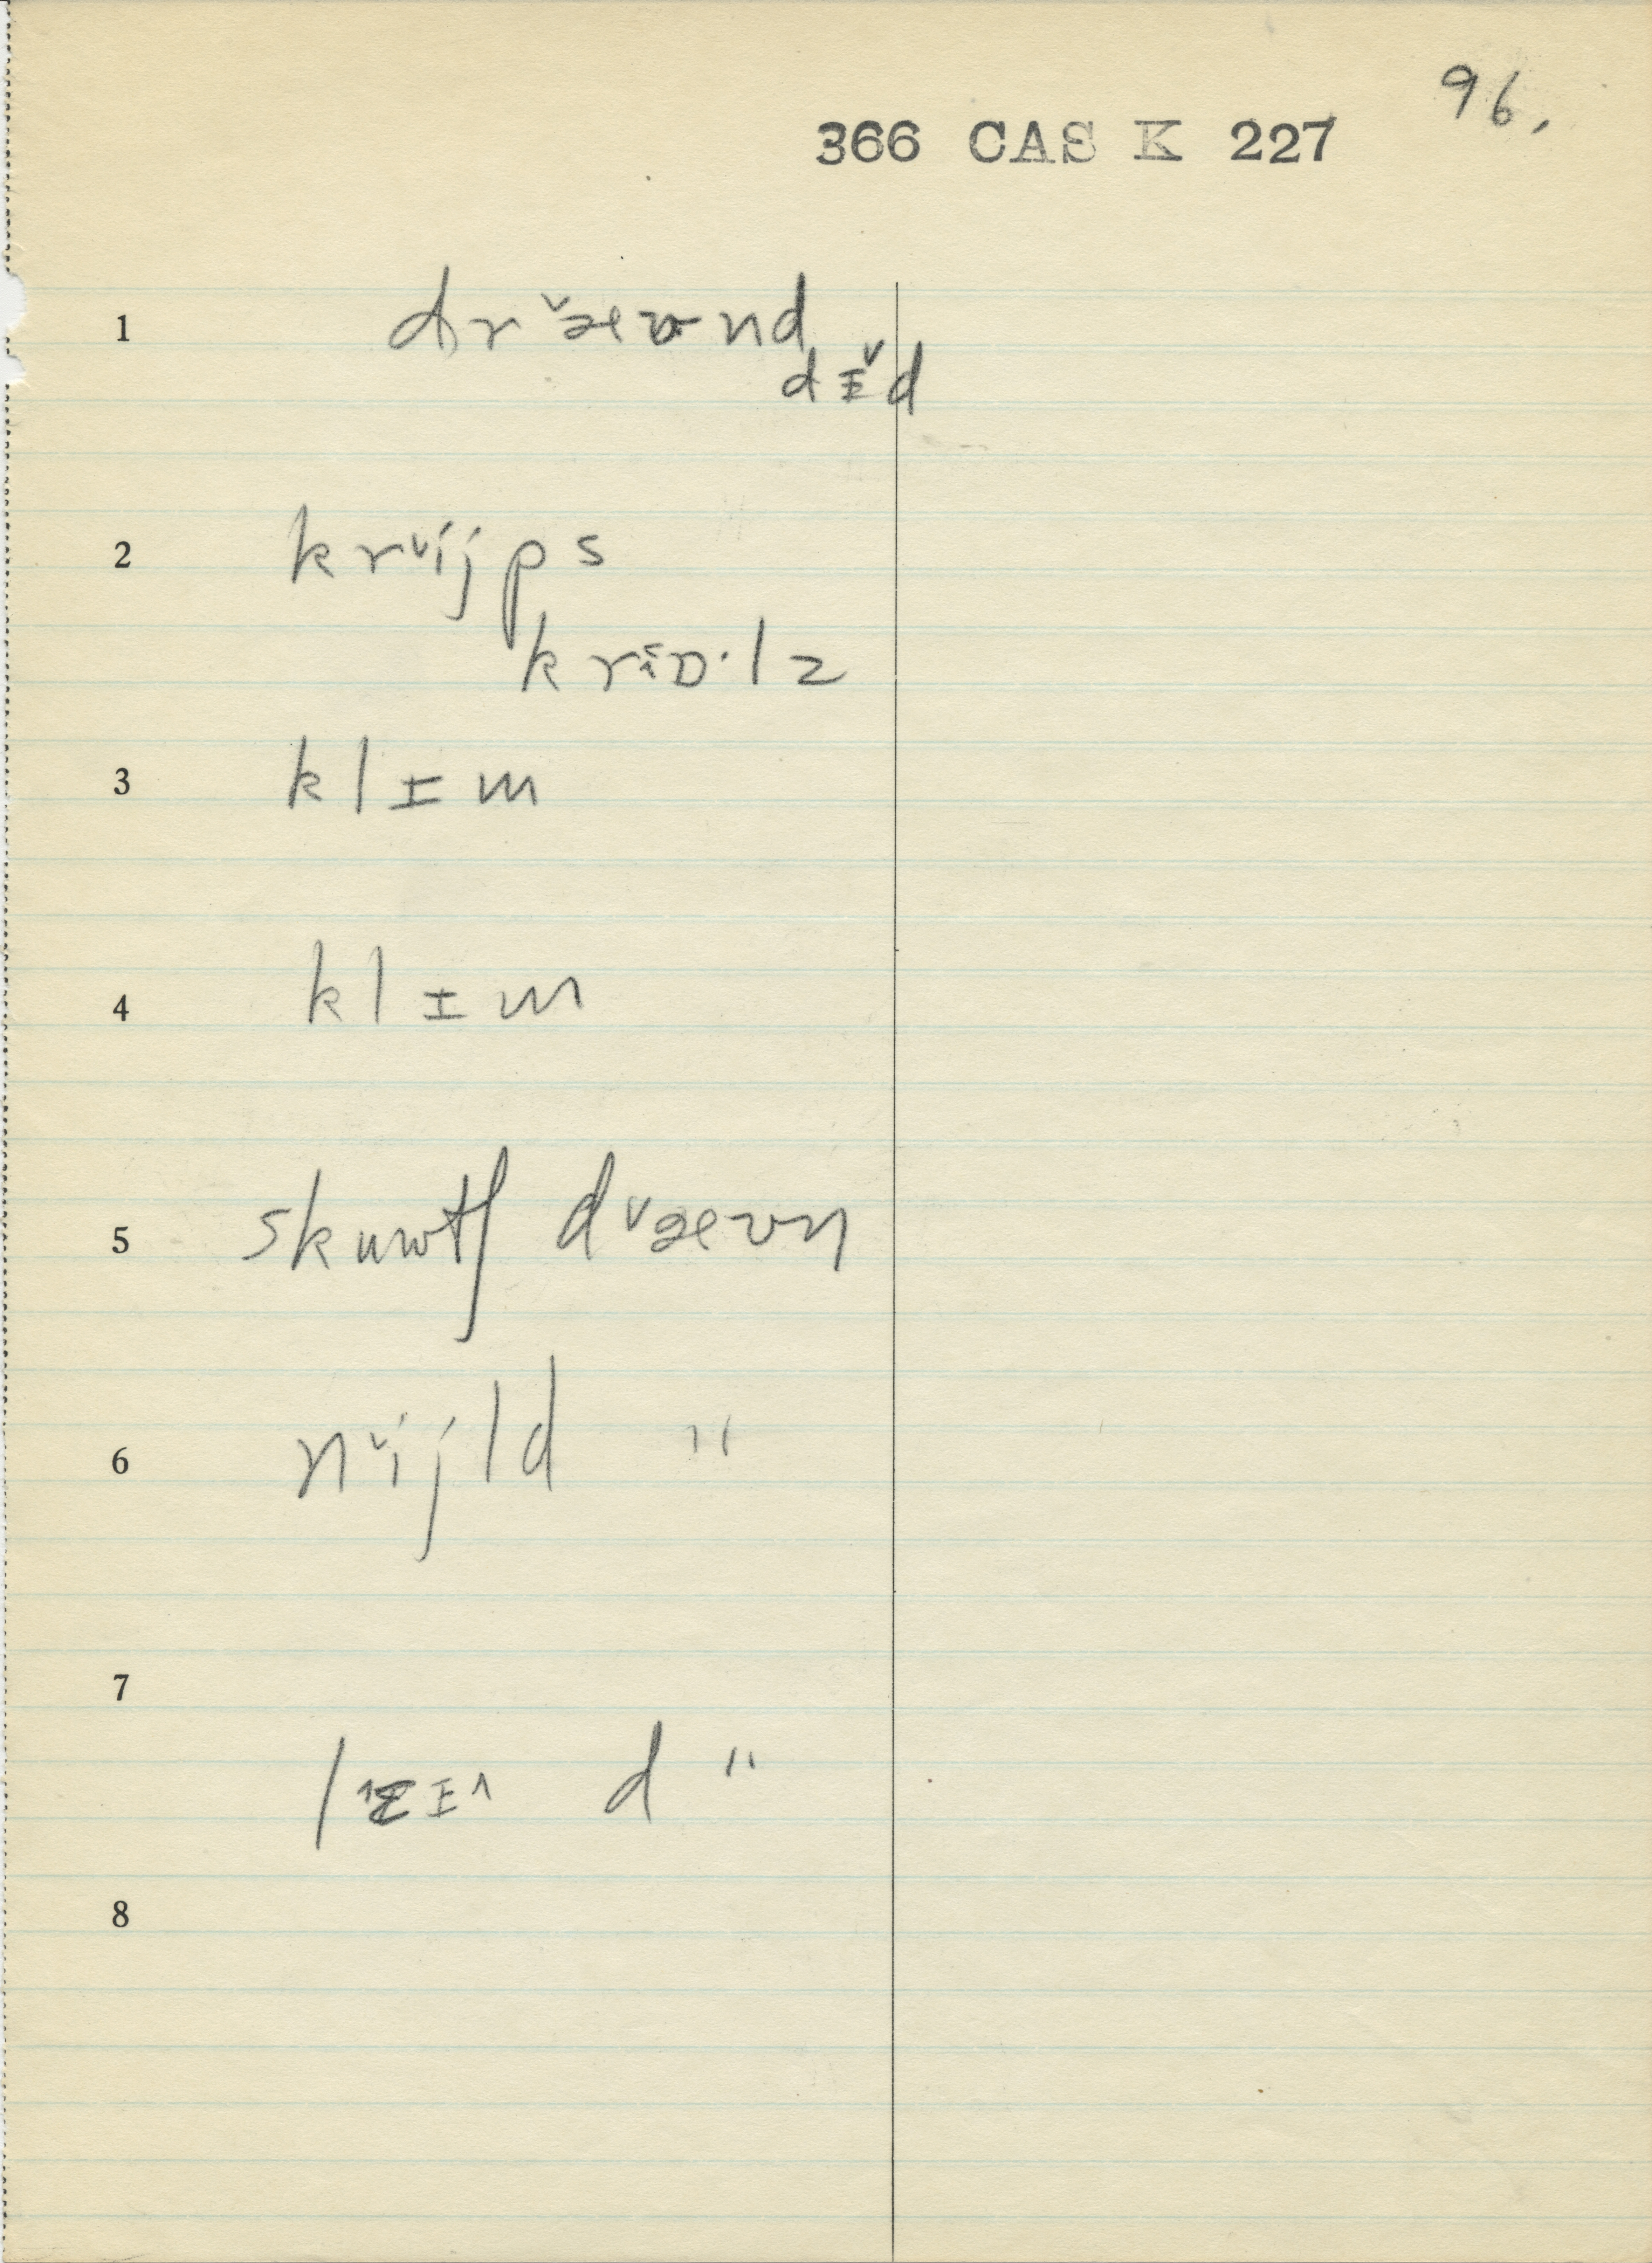 96.
366 CAS K 227
1 dr˅æʊnd
dɪ˅d
2 kr˅ijps
krɒ·lz
3 klɪm
4 klɪm
5 skuwtʃ d˅æʊn
6 n˅ijld "
7
d "
8